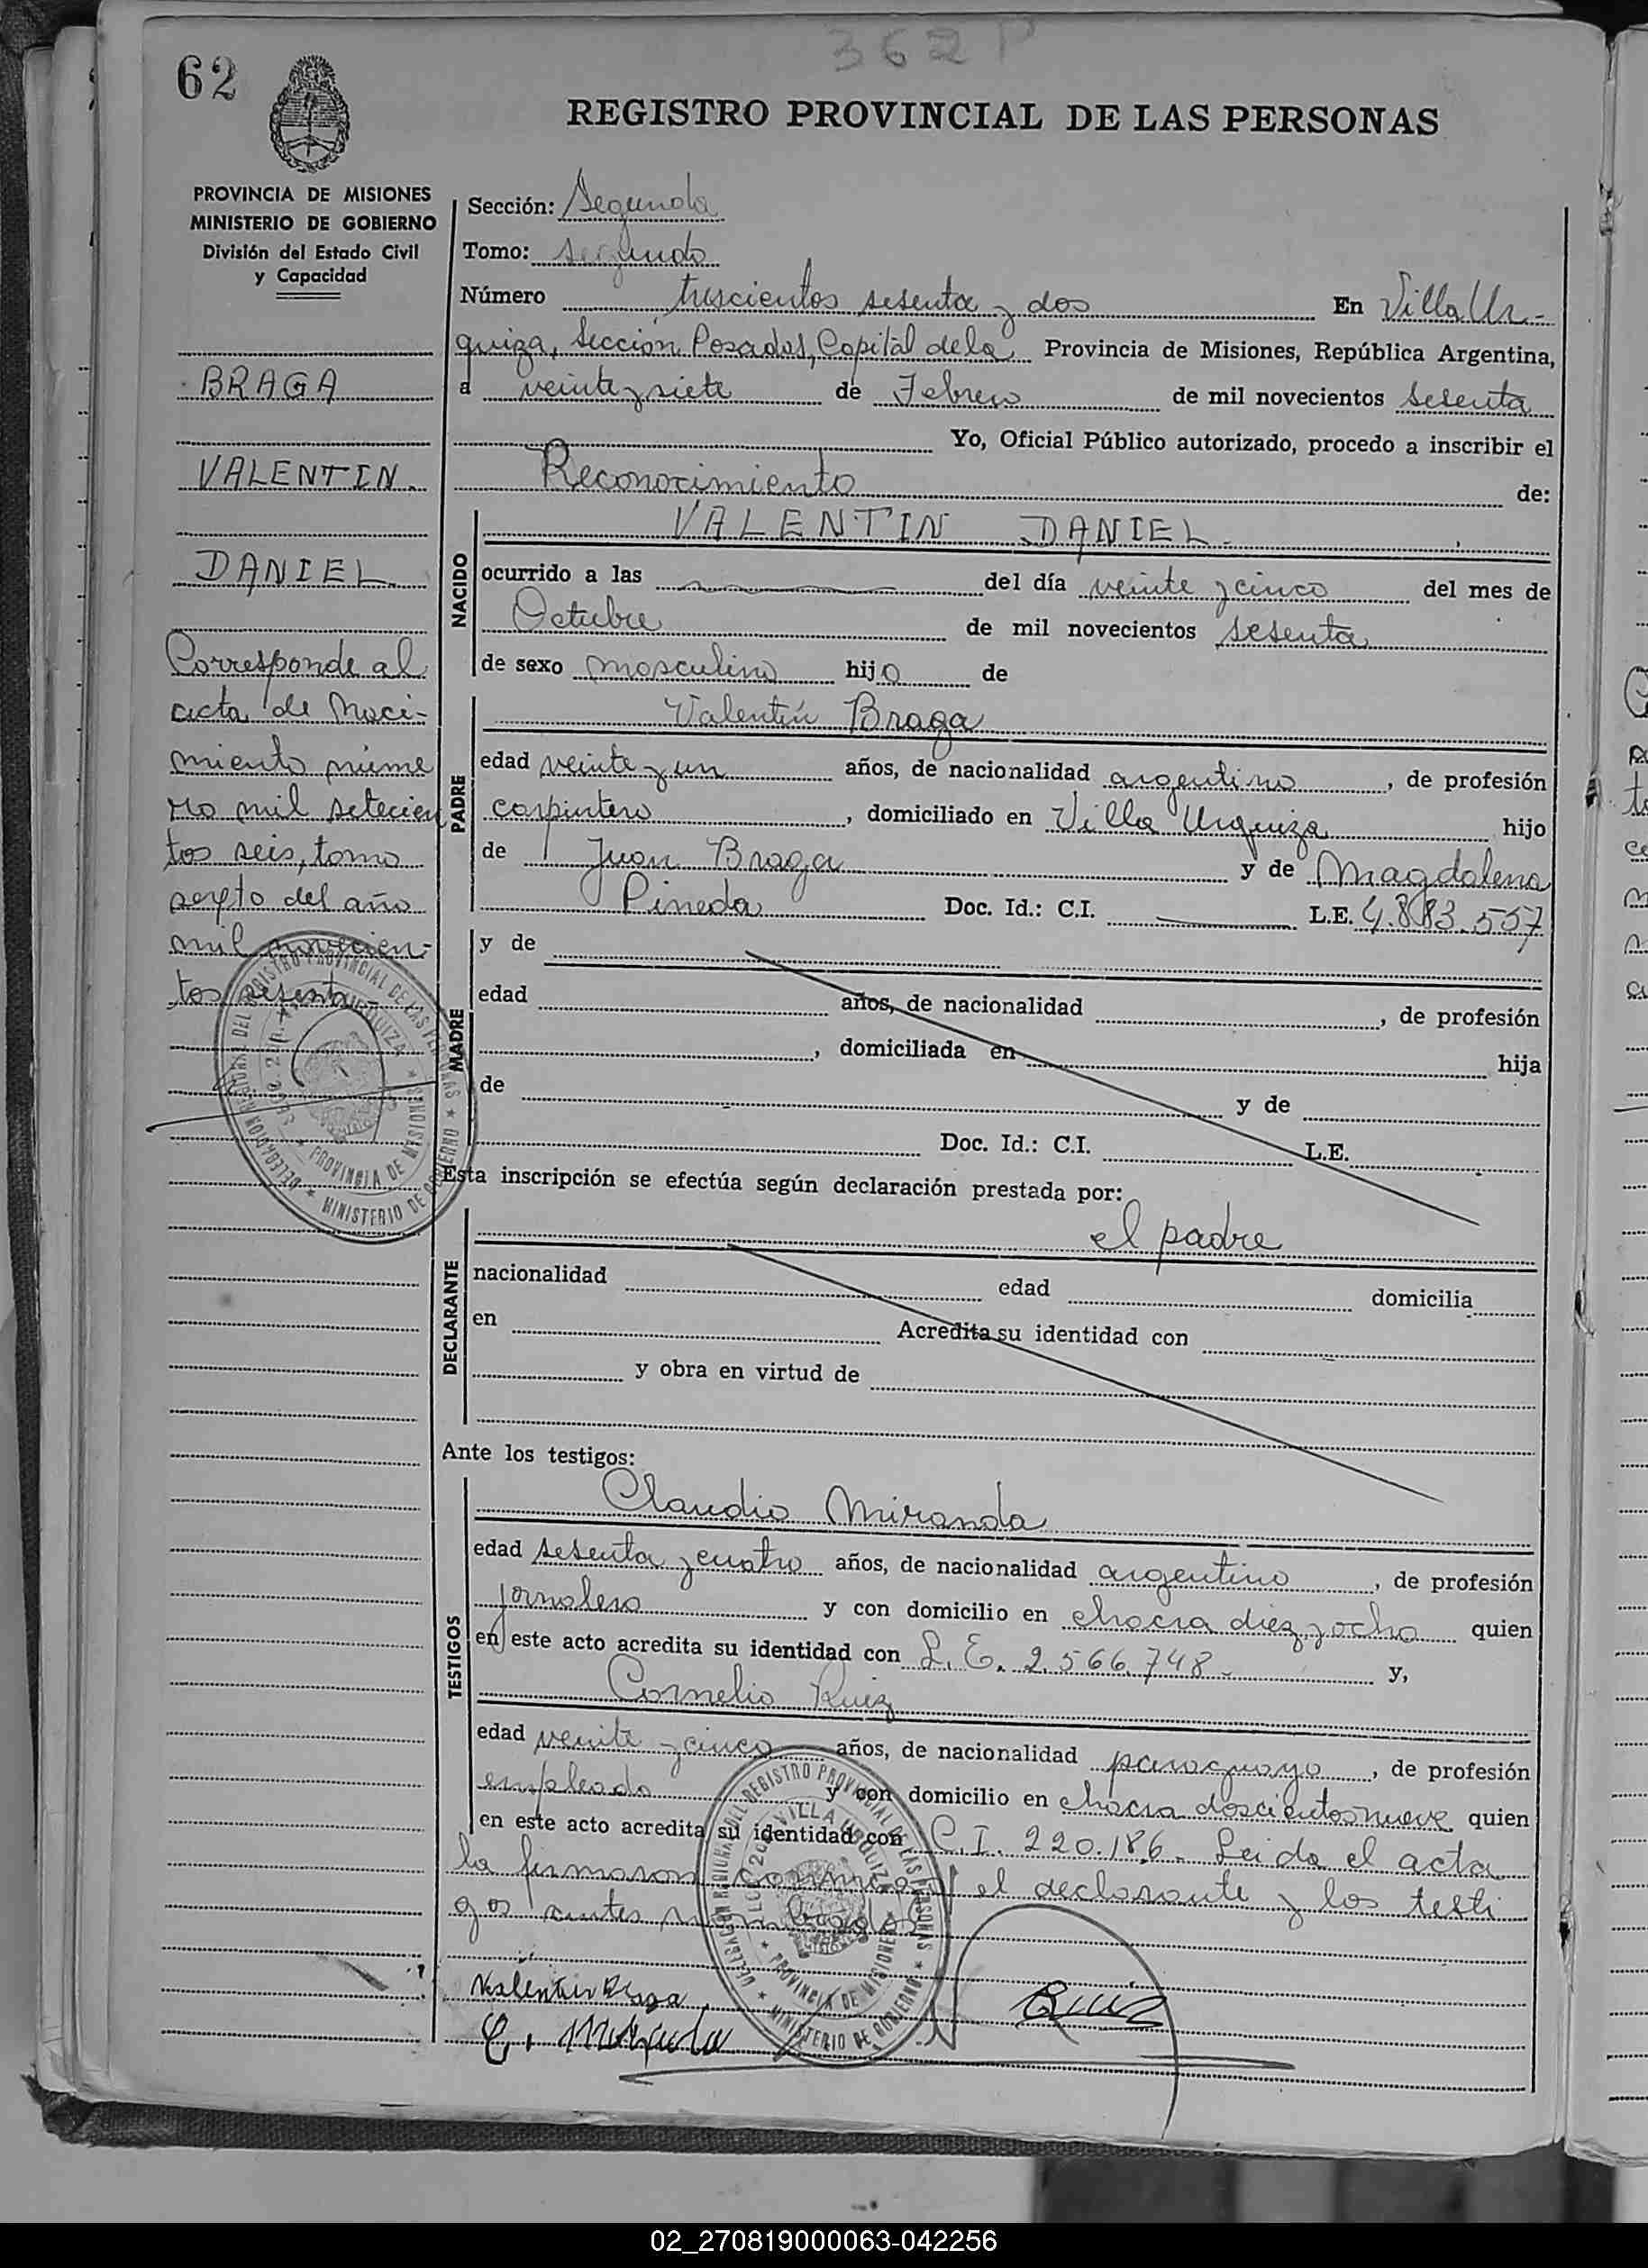 362 P
62
REGISTRO PROVINCIAL DE LAS PERSONAS
PROVINCIA DE MISIONES
MINISTERIO DE GOBIERNO
División del Estado Civil
y Capacidad
BRAGA
VALENTIN.
DANIEL.
Corresponde al
acta de Naci-
miento núme
ro mil setecien
tos seis, tomo
sexto del año
mil novecien-
tos sesenta
Sección: Segunda
Tomo: segundo
Número trescientos sesenta y dos En Villa Ur-
quiza, Sección Posadas, Capital de la Provincia de Misiones, República Argentina,
a veinte y siete de Febrero de mil novecientos sesenta
Yo, Oficial Público autorizado, procedo a inscribir el
Reconocimiento de:
NACIDO
VALENTIN DANIEL.
ocurrido a las del día veinte y cinco del mes de
Octubre de mil novecientos sesenta
de sexo masculino hijo de
PADRE
Valentín Braga
edad veinte y un años, de nacionalidad argentino, de profesión
carpintero, domiciliado en Villa Urquiza hijo
de Juan Braga y de Magdalena
Pineda Doc. Id.: C.I. L.E. 4.883.557
MADRE
y de
edad años, de nacionalidad , de profesión
, domiciliada en hija
de y de
Doc. Id.: C.I. L.E.
Esta inscripción se efectúa según declaración prestada por:
DECLARANTE
el padre
nacionalidad edad domicilia
en Acredita su identidad con
y obra en virtud de
Ante los testigos:
TESTIGOS
Claudio Miranda
edad sesenta y cuatro años, de nacionalidad argentino, de profesión
jornalero y con domicilio en chacra diez y ocho quien
en este acto acredita su identidad con L.E. 2.566.748- y,
Cornelio Ruiz
edad veinte y cinco años, de nacionalidad paraguayo, de profesión
empleado y con domicilio en chacra doscientos nueve quien
en este acto acredita su identidad con C.I. 220.186- Leida el acta
la firmaron conmigo el declarante y los testi
gos antes nombrados
Valentin Braga
C. Miranda
Ruiz
DELEGACION REGIONAL DEL REGISTRO PROVINCIAL DE LAS PERSONAS * MINISTERIO DE GOBIERNO *
VILLA URQUIZA * PROVINCIA DE MISIONES *
02_270819000063-042256